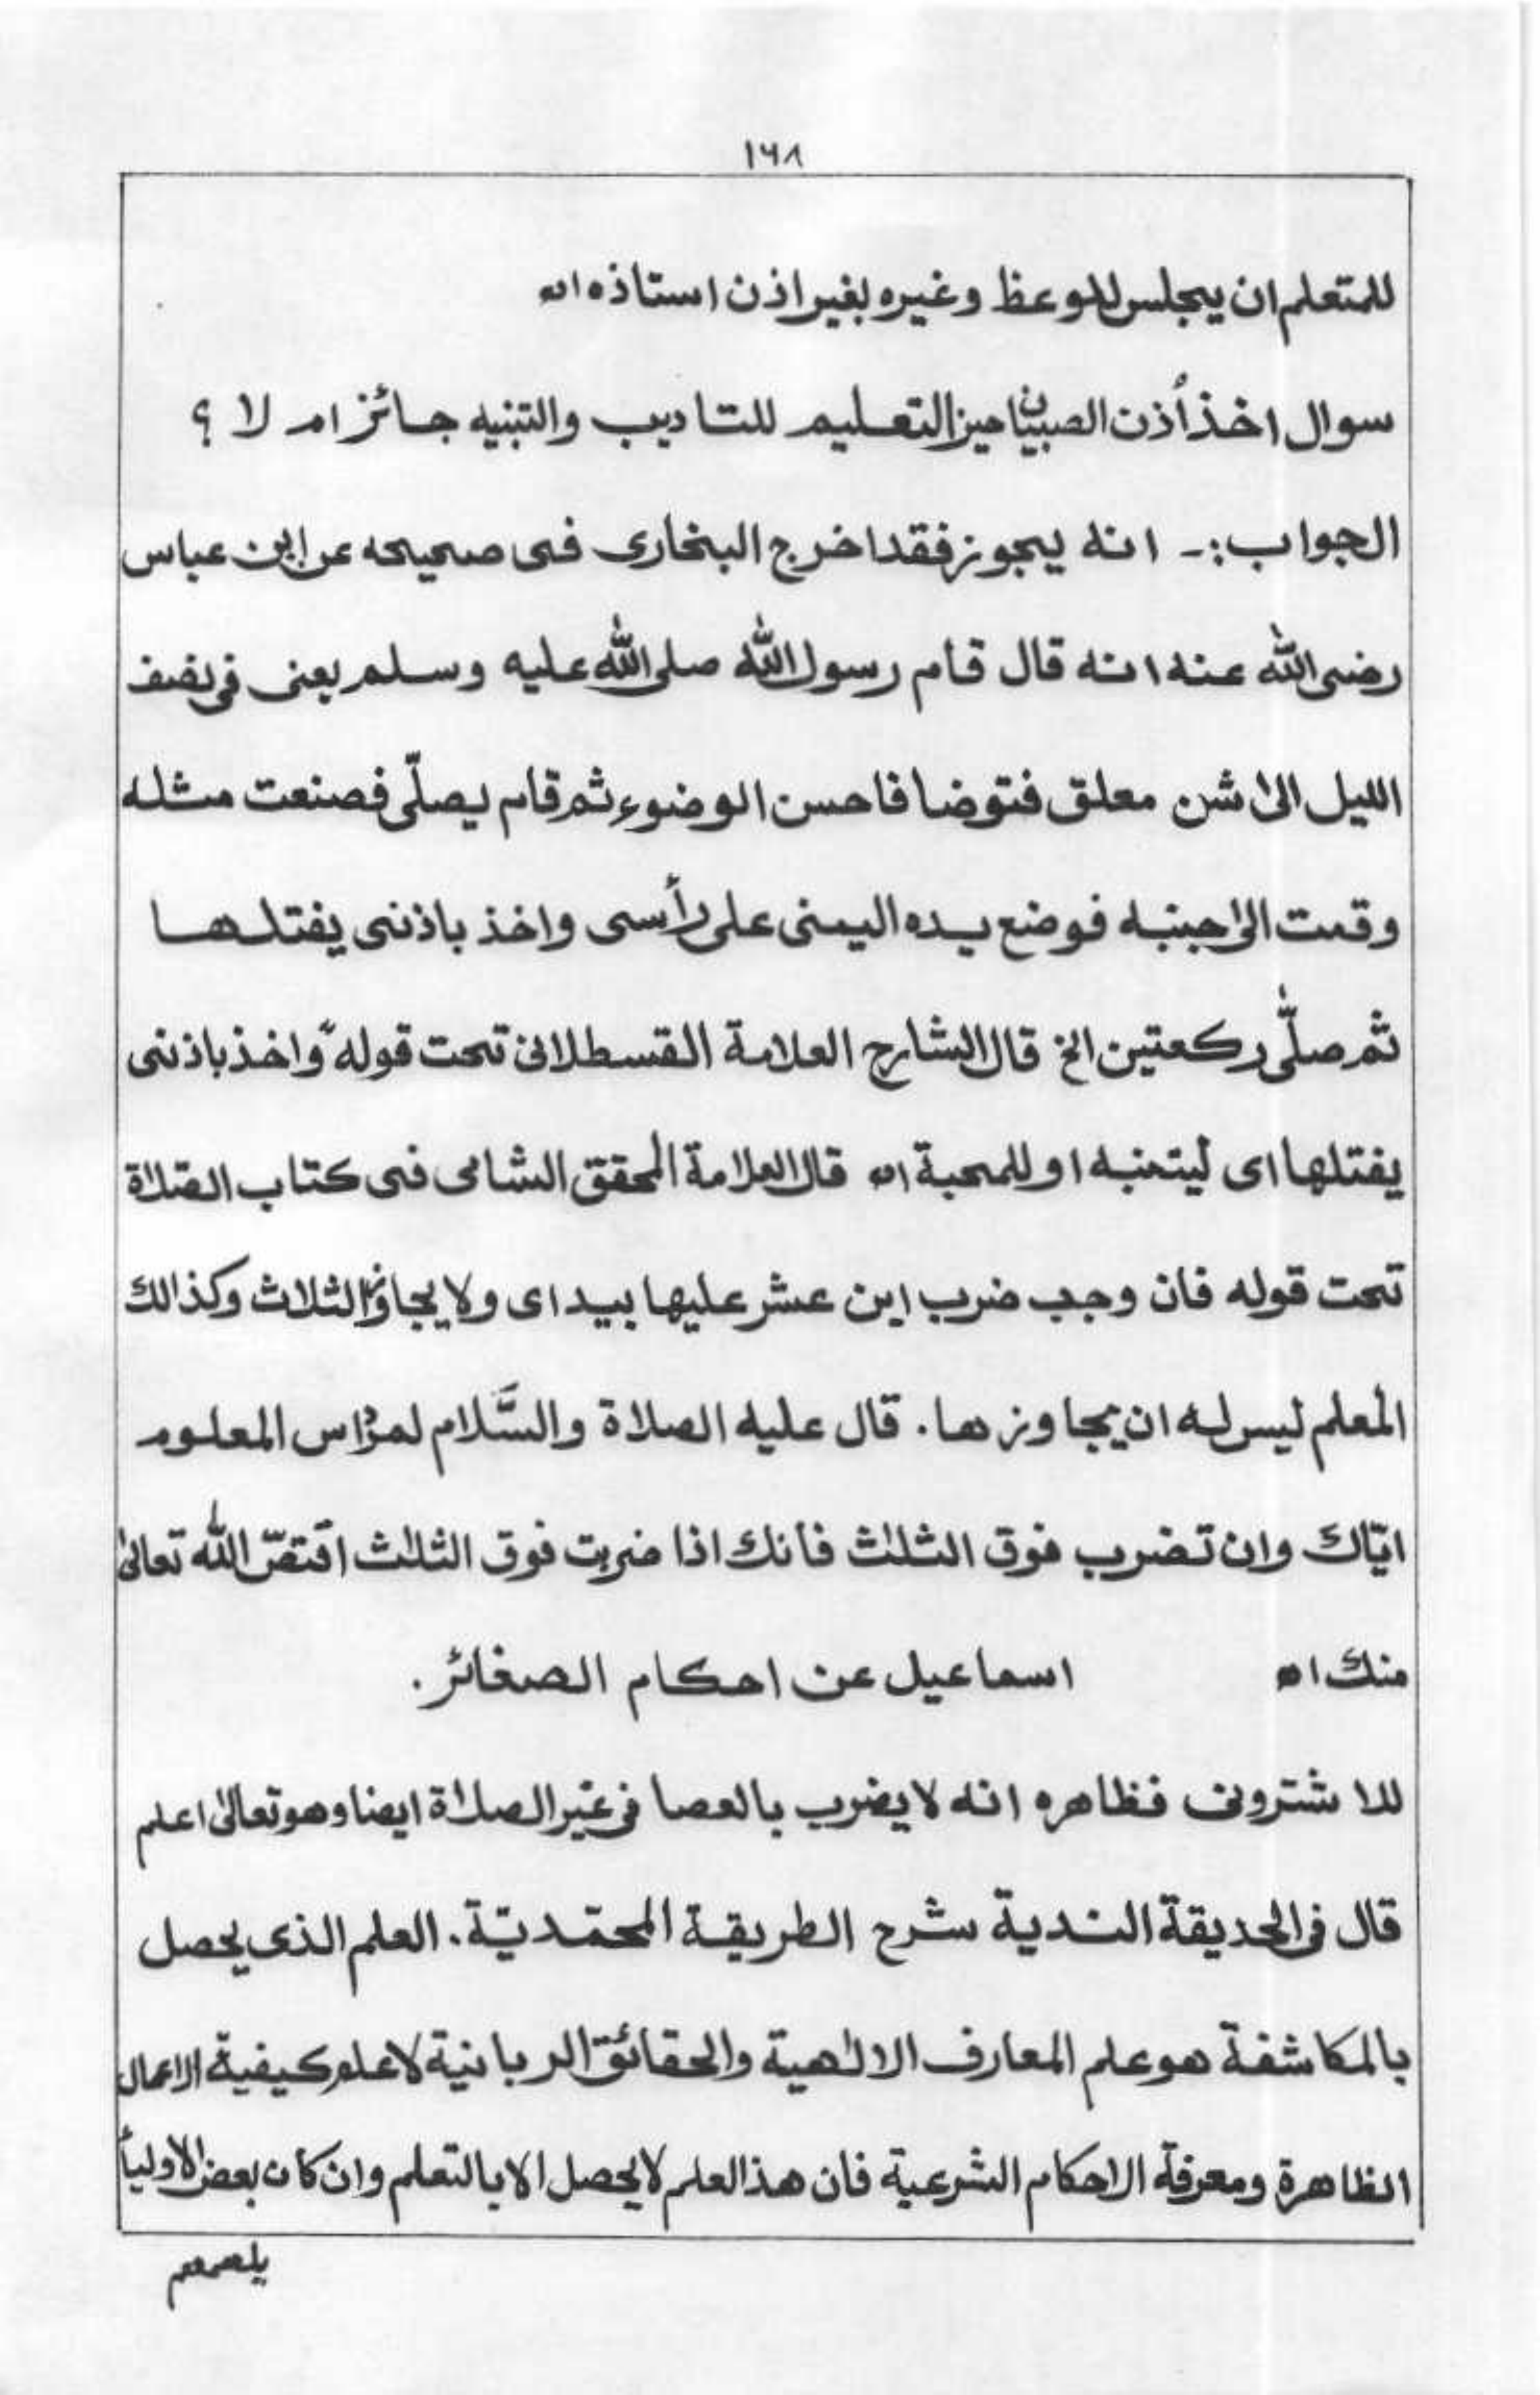 ١٦٨
للمتعلم ان يجلس للوعظ وغيره بغير اذن استاذه اه
سوال اخذ أذن الصبيان حين التعليم للتاديب والتبنيه جائز ام لا ؟
الجواب :- انه يجوز فقد اخرج البخاري فى صحيحه عن ابن عباس
رضى الله عنه انه قال قام رسول الله صلى الله عليه وسلم يعنى فى نصف
الليل الىٰ شن معلق فتوضا فاحسن الوضوء ثم قام يصلّى فصنعت مثله
وقمت الىٰ جنبه فوضع يده اليمنى على رأسى واخذ باذنى يفتلها
ثم صلّٰى ركعتين الخ قال الشارح العلامة القسطلانى تحت قوله واخذ باذنى
يفتلها اى ليتنبه او للمحبة اه قال العلامة المحقق الشامى فى كتاب الصّلاة
تحت قوله فان وجب ضرب ابن عشر عليها بيد اى ولا يجاوز الثلاث وكذالك
المعلم ليس له ان يجاوزها . قال عليه الصلاة والسَّلام لمرداس المعلوم
ايّاك وان تضرب فوق الثلٰث فانك اذا ضربت فوق الثلٰث اقتصّ الله تعالىٰ
منك اه اسماعيل عن احكام الصغائر .
للاشتروشى فظاهره انه لا يضرب بالعصا فى غير الصلاة ايضا وهو تعالىٰ اعلم
قال فى الحديقة الندية شرح الطريقة المحمّديّة . العلم الذى يحصل
بالمكاشفة هو علم المعارف الالٰهية والحقائق الربانية لا علم كيفية الاعمال
الظاهرة ومعرفة الاحكام الشرعية فان هذا العلم لا يحصل الا بالتعلم وان كان بعض الاوليأ